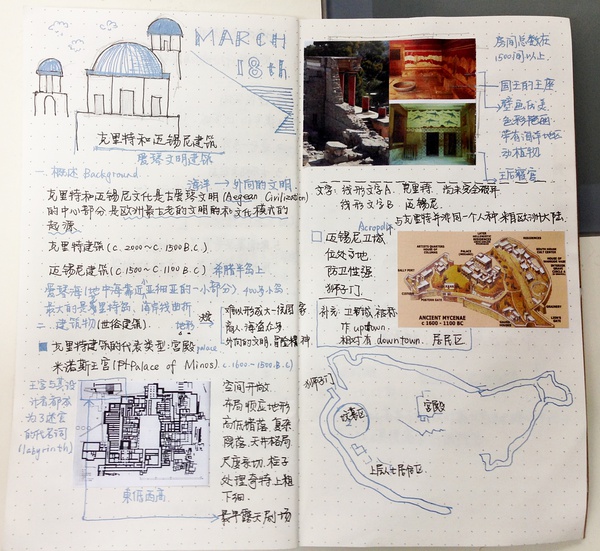 MARCH
18th
克里特和迈锡尼建筑
爱琴文明建筑
一. 概述 Background
海洋 → 外向的文明
克里特和迈锡尼文化是古爱琴文明 (Aegean Civilization)
的中心部分 是欧洲最古老的文明的和文化模式的
起源
克里特建筑 (c. 2000~c. 1500 B.C.)
迈锡尼建筑 (c 1500~c 1100 B.C) 希腊半岛上
爱琴海 (地中海靠近亚细亚的一小部分) 400多小岛
最大的是克里特岛, 海岸线曲折
二. 建筑物 (世俗建筑).
地形
难以形成大一统国家
商人, 海盗众多
外向的文明, 冒险精神
克里特建筑的代表类型: 宫殿 palace
米诺斯王宫 (Palace of Minos) c. 1600~1500 B.C
王宫与其设
计者都成
为了迷宫
的代名词
(labyrinth)
东低西高
空间开敞
布局顺应地形
高低错落, 复杂
院落, 天井格局
尺度亲切, 柱子
处理奇特上粗
下细.
最早露天剧场
房间总数在
1500间以上.
国王的王座
壁画仍是
色彩艳丽
带有海洋地区
动植物
王后寝宫
文字: 线形文字A. 克里特. 尚未完全破译
线形文字B 迈锡尼.
与克里特并非同一个人种, 来自欧洲大陆.
Acropolis
迈锡尼卫城
位处高地
防卫性强
狮子门.
ANCIENT MYCENE
c 1600 - 1100 BC
补充: 卫城, 俗称
作 uptown.
相对有 downtown. 居民区
狮子门
宫殿
上层人士居住区.